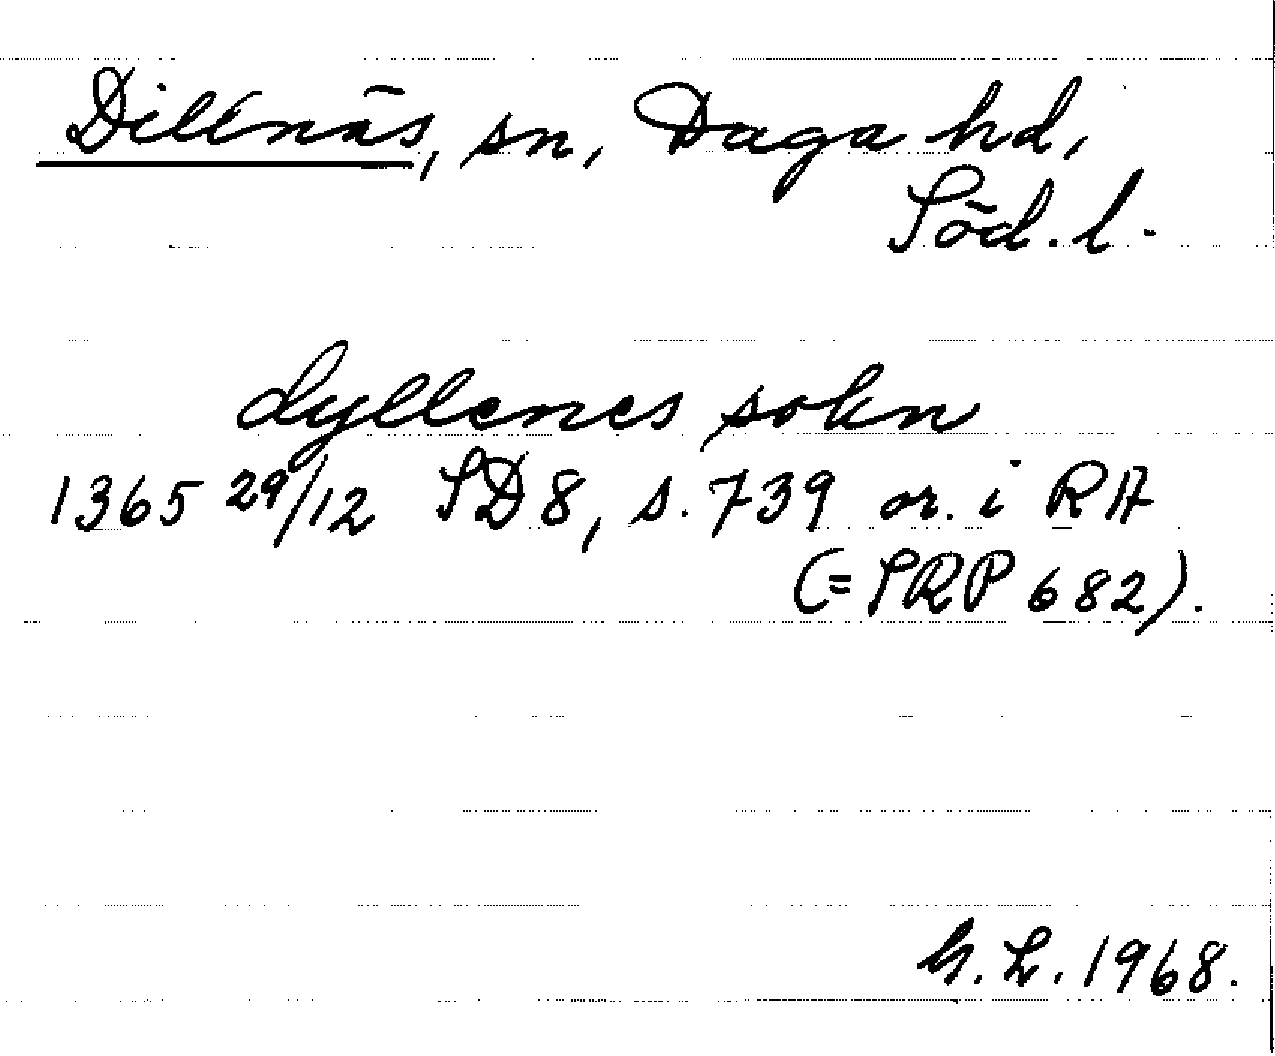 Dillnäs, sn, Daga hd,
Söd. l.
dyllenes sokn
1365 29/12 SD 8, s. 739 or. i RA
(= SRP 682).
G. L. 1968.